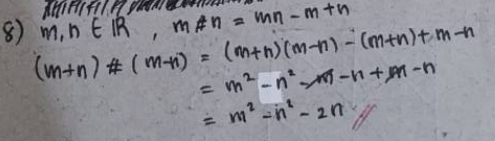 8) m, n ∈ ℝ , m # n = mn - m + n
(m+n) # (m-n) = (m+n)(m-n) - (m+n) + m-n
= m² - n² - m - n + m - n
= m² - n² - 2n